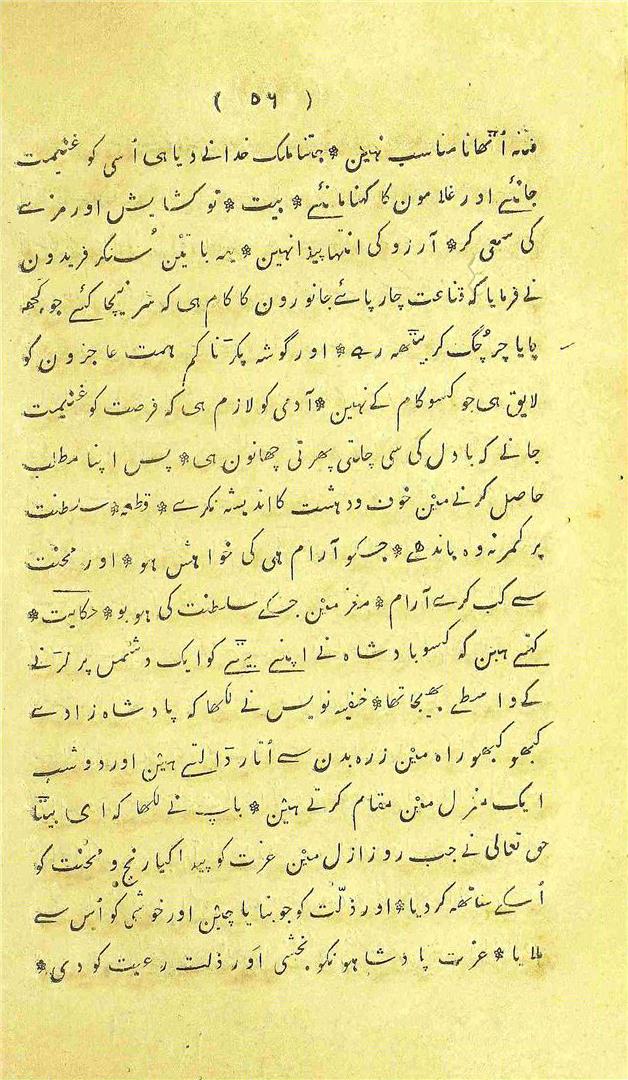 ( ٥٦ )
فتنہ اُٹھانا مناسب نہین * جتنا ملک خدا نے دیا ہی اُسی کو غنیمت
جانئے اور غلامون کا کہنا مانئے * بیت * تو کشایش اور مرز سے
کی سعی کر * آرزو کی انتہا پیدا نہین * یہہ باتین سُنکر فریدون
نے فرمایا کہ قناعت چارپائے جانورون کا کام ہی کہ سر نیچا کئے جو کچھ
پایا چر چُگ کر بیٹھہ رہے * اور گوشہ پکڑنا کم ہمت عاجزون کو
لایق ہی جو کسو کام کے نہین * آدمی کو لازم ہی کہ فرصت کو غنیمت
جانے کہ بادل کی سی چلتی پھرتی چھانون ہی * پس اپنا مطلب
حاصل کرنے مین خوف و دہشت کا اندیشہ نکرے * قطعہ * سلطنت
پر کمر نہ وہ باندھے * جسکو آرام ہی کی خواہش ہو * اور محنت
سے کب کرے آرام * مغز مین جسکے سلطنت کی ہو بو * حکایت *
کہتے ہین کہ کسو بادشاہ نے اپنے بیٹے کو ایک دشمن پر لڑنے
کے واسطے بھیجا تھا * خفیہ نویس نے لکھا کہ پادشاہ زادے
کبھو کبھو راہ مین زرہ بدن سے اُتار ڈالتے ہین اور دو شب
ایک منزل مین مقام کرتے ہین * باپ نے لکھا کہ ای بیٹا
حق تعالی نے جب روز ازل مین عزت کو پیدا کیا رنج و محنت کو
اُسکے ساتھہ کر دیا * اور ذلّت کو جو بنایا چین اور خوشی کو اُس سے
ملایا * عزت پادشاہونکو بخشی اور ذلت رعیت کو دی *